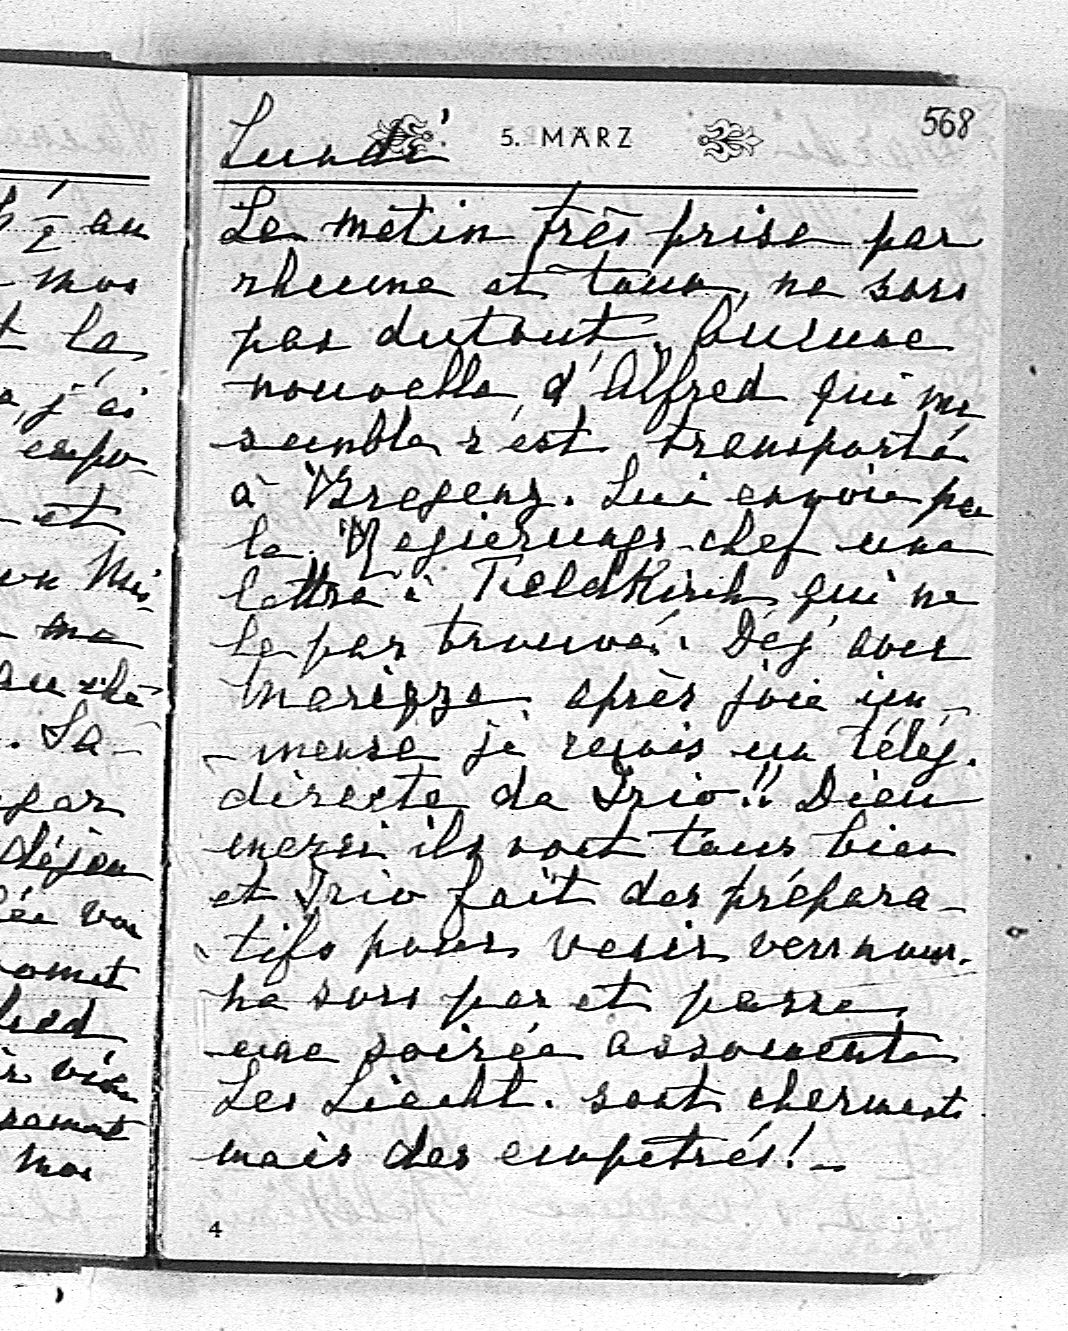 568
Lundi
5. MÄRZ
Le matin très prise par
rhume et toux, ne sors
pas dutout. Aucune
nouvelle d'Alfred qui me
semble s'est transporté
à Bregenz. Lui envoie par
le Regierungschef une
lettre à Feldkirch qui ne
le pas trouvé. Déj avec
Marizza après joie im-
mense je reçois un télég.
directe de Trio!! Dieu
merci ils vont tous bien
et Trio fait des prépara-
tifs pour venir vers nous.
ne sors pas et passe
une soirée assomente
Les Liecht. sont charmants
mais des empetrés! -
4
½ au
moi
la
j'ai
et
un
me
Sa-
par
déjeu